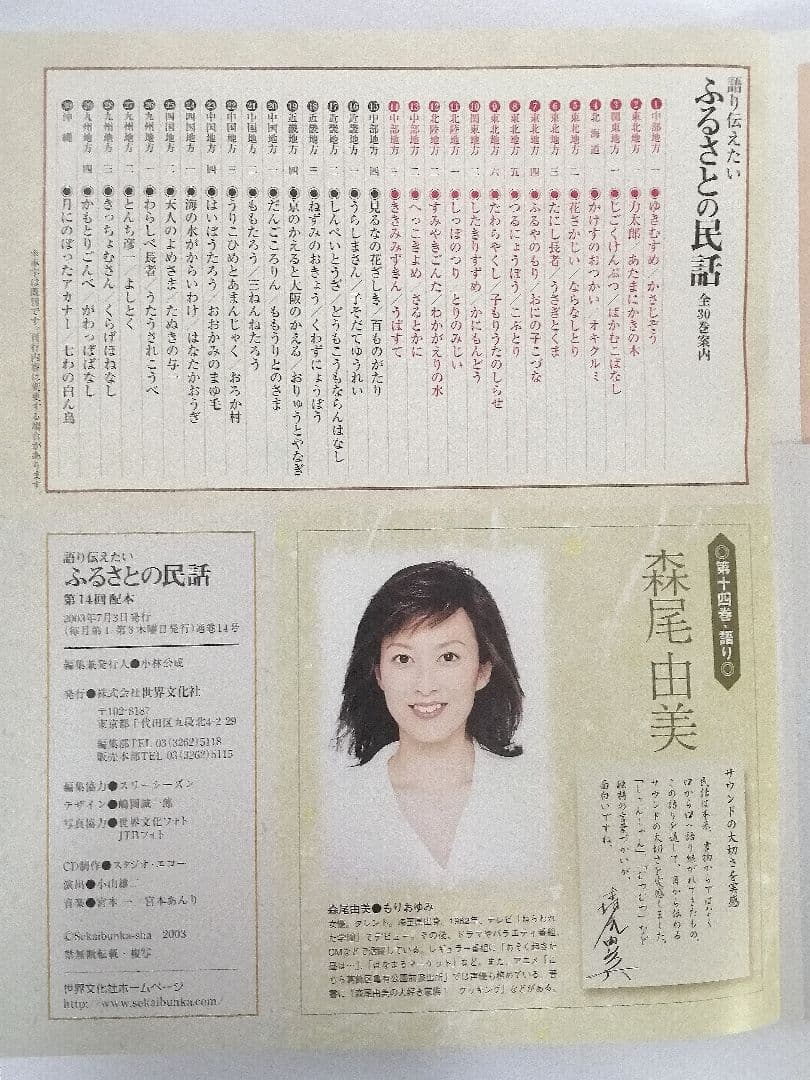 語り伝えたい
ふるさとの民話 全30巻案内
1 中部地方 一 ●ゆきむすめ／かさじぞう
2 東北地方 一 ●力太郎／あたまにかきの木
3 関東地方 一 ●じごくけんぶつ／ばかむこばなし
4 北海道 ●かけすのおつかい／オキクルミ
5 東北地方 二 ●花さかじい／ならなしとり
6 東北地方 三 ●たにし長者／うさぎとくま
7 東北地方 四 ●ふるやのもり／おにの子こづな
8 東北地方 五 ●つるにょうぼう／こぶとり
9 東北地方 六 ●たわらやくし／子もりうたのしらせ
10 関東地方 二 ●したきりすずめ／かにもんどう
11 北陸地方 一 ●しっぽのつり／とりのみじい
12 北陸地方 二 ●すみやきごんた／わかがえりの水
13 中部地方 二 ●へっこきよめ／さるとかに
14 中部地方 三 ●ききみみずきん／うばすて
15 中部地方 四 ●見るなの花ざしき／百ものがたり
16 近畿地方 一 ●うらしまさん／子そだてゆうれい
17 近畿地方 二 ●しんぺいとうざ／どうもこうもならんはなし
18 近畿地方 三 ●ねずみのおきょう／くわずにょうぼう
19 近畿地方 四 ●京のかえると大阪のかえる／おりゅうとやなぎ
20 中国地方 一 ●だんごころりん／ももうりとのさま
21 中国地方 二 ●ももたろう／三ねんねたろう
22 中国地方 三 ●うりこひめとあまんじゃく／おろか村
23 中国地方 四 ●はいぼうたろう／おおかみのまゆ毛
24 四国地方 一 ●海の水がからいわけ／はなたかおうぎ
25 四国地方 二 ●天人のよめさま／たぬきの与一
26 九州地方 一 ●わらしべ長者／うたうされこうべ
27 九州地方 二 ●とんち彦一／よしとく
28 九州地方 三 ●きっちょむさん／くらげほねなし
29 九州地方 四 ●かもとりごんべ／がわっぱばなし
30 沖縄 ●月にのぼったアカナー／七わの白ん鳥
※赤字は既刊です。刊行内容は変更する場合があります。
◎第十四巻・語り◎
森尾由美
サウンドの大切さを実感
民話は本来、書物からではなく
口から口へ語り継がれてきたもの。
この語りを通して、耳から伝わる
サウンドの大切さを実感しました。
独特の言葉づかいが、
面白いですね。
森尾由美
森尾由美●もりおゆみ
女優。タレント。埼玉県出身。1982年、テレビ「ねらわれ
た学園」でデビュー。その後、ドラマやバラエティ番組、
CMなどで活躍している。レギュラー番組に「おそく起きた
昼は…」、「はなまるマーケット」など。また、アニメ「こ
ちら葛飾区亀有公園前派出所」では声優も務めている。著
書に「森尾由美の大好き家族！ クッキング」などがある。
語り伝えたい
ふるさとの民話
第14回配本
2003年7月3日発行
(毎月第1、第3木曜日発行)通巻14号
編集兼発行人●小林公成
発行●株式会社世界文化社
〒102-8187
東京都千代田区九段北4-2-29
編集部TEL 03(3262)5118
販売本部TEL 03(3262)5115
編集協力●スリーシーズン
デザイン●嶋岡誠一郎
写真協力●世界文化フォト
JTBフォト
CD制作●スタジオ・エコー
演出●小山雄二
音楽●宮本一 宮本あんり
©Sekaibunka-sha 2003
禁無断転載・複写
世界文化社ホームページ
http://www.sekaibunka.com/